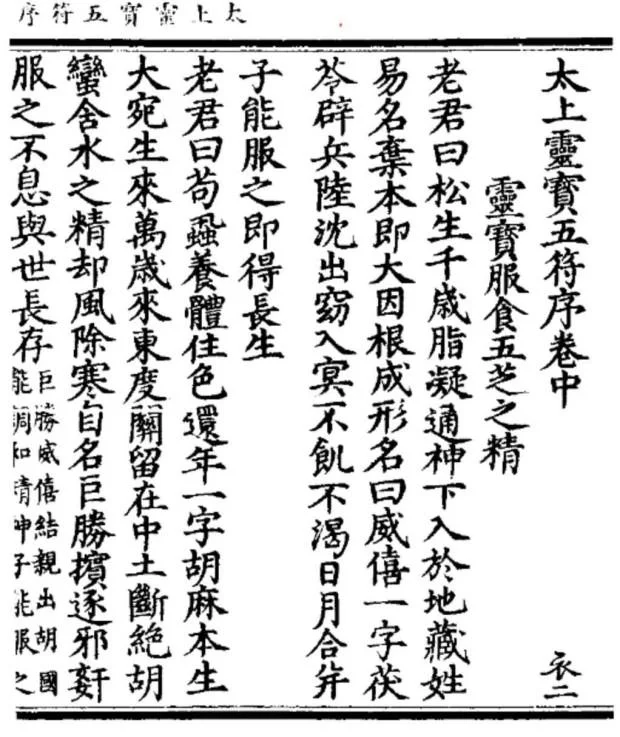 太上靈寶五符序
太上靈寶五符序卷中
衣二
靈寶服食五芝之精
老君曰松生千歲脂凝通神下入於地藏姓
易名棄本即大因根成形名曰威僖一字茯
苓辟兵陸沈出窈入冥不飢不渴日月合并
子能服之即得長生
老君曰苟蝨養體住色還年一字胡麻本生
大宛生來萬歲來東度關留在中土斷絕胡
蠻舍水之精却風除寒自名巨勝擯逐邪姧
服之不息與世長存
巨勝威僖結親出胡國
能調和精神子能服之